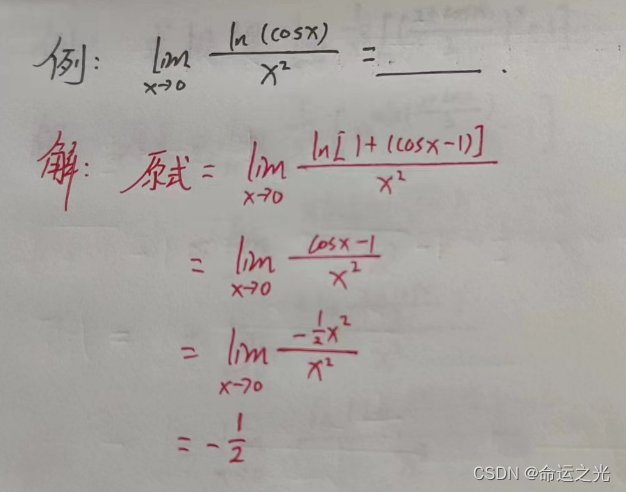 例: lim x→0 ln(cosx)/x² = ______ .
解: 原式 = lim x→0 ln[1+(cosx-1)]/x²
= lim x→0 cosx-1/x²
= lim x→0 -1/2x²/x²
= -1/2
CSDN @命运之光